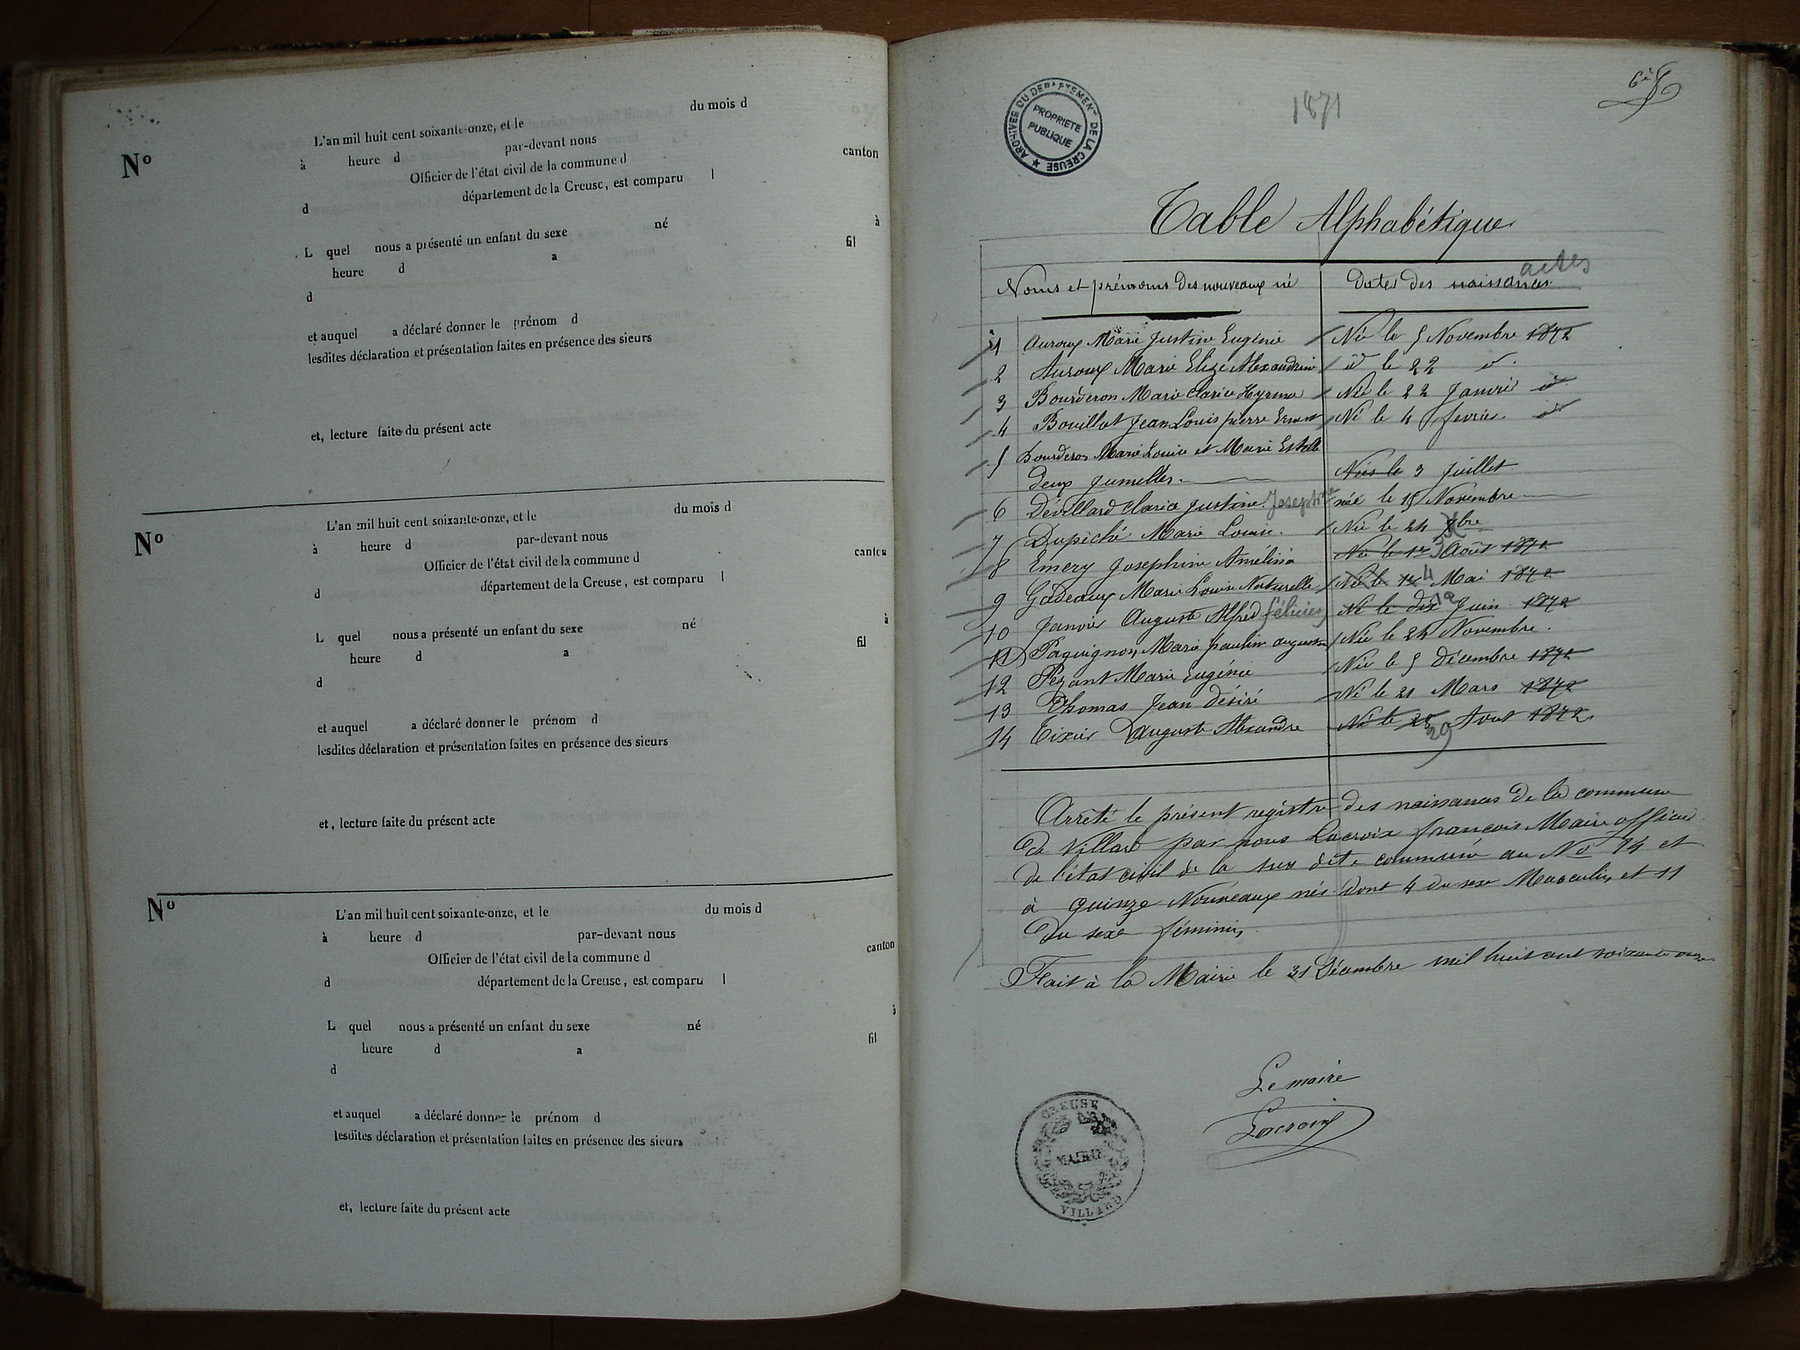 du mois d
L'an mil huit cent soixante-onze, et le
Nº
à heure d par-devant nous
Officier de l'état civil de la commune d canton
d département de la Creuse, est comparu l
à
L quel nous a présenté un enfant du sexe né
heure d a fil
d
et auquel a déclaré donner le prénom d
lesdites déclaration et présentation faites en présence des sieurs
et, lecture faite du présent acte
L'an mil huit cent soixante-onze, et le du mois d
Nº
à heure d par-devant nous
Officier de l'état civil de la commune d canton
d département de la Creuse, est comparu l
à
L quel nous a présenté un enfant du sexe né
heure d a fil
d
et auquel a déclaré donner le prénom d
lesdites déclaration et présentation faites en présence des sieurs
et, lecture faite du présent acte
Nº
L'an mil huit cent soixante-onze, et le du mois d
à heure d par-devant nous
Officier de l'état civil de la commune d canton
d département de la Creuse, est comparu l
à
L quel nous a présenté un enfant du sexe né
heure d a fil
d
et auquel a déclaré donner le prénom d
lesdites déclaration et présentation faites en présence des sieurs
et, lecture faite du présent acte
ARCHIVES DU DEPARTEMENT DE LA CREUSE
PROPRIETE
PUBLIQUE
1871
Table Alphabétique
Noms et prénoms des nouveaux né Dates des naissances actes
1 Auroux Marie Justine Eugénie Née le 5 Novembre 1872
2 Auroux Marie Elize Alexandrine id le 22 id
3 Bourderon Marie Clarice Née le 22 Janvié id
4 Bouillot Jean Louis pierre Ernest Né le 4 fevrie. id
5 Bourderon Marie Louise et Marie Estelle
deux jumelles. Nées le 3 Juillet
6 Devillard Claria Justine Josephine née le 15 Novembre
7 Dupêché Marie Louise. Née le 24 bre
8 Emery Josephine Amélina Née le 12 3 Août 1872
9 Gadeaux Marie Louise Naturelle Née le 12 4 Mai 1872
10 Janvié Auguste Alfred félicien Né le dix 12 Juin 1872
11 Paquignon Marie paulin augustin Née le 24 Novembre.
12 Pezant Marie Eugénie Née le 5 décembre 1872
13 Thomas Jean désiré Né le 21 Mars 1872
14 Tixier Auguste Alexandre Né le 28 29 Aout 1872.
Arrêté le présent registre des naissances de la commune
de Villard par nous Lacroix françois Maire officier
de l'état civil de la sus dite commune au No 14 et
à quinze Nouveaux nés dont 4 du sexe Masculin, et 11
du sexe féminin,
Fait à la Mairie le 31 Décembre mil huit cent soixante onze
Le maire
Lacroix
CREUSE
MAIRIE
VILLARD